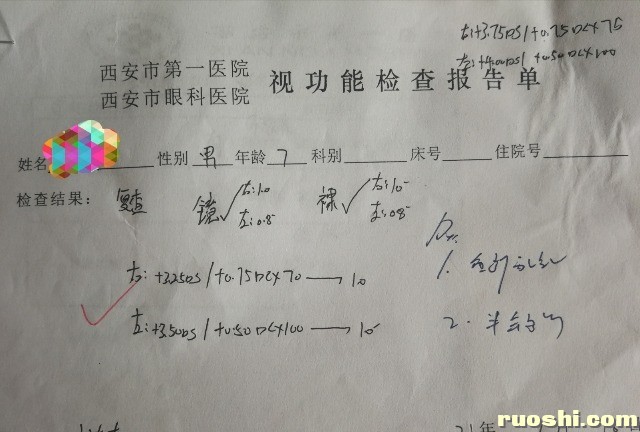 右:+3.75DS/+0.75DCX75
左:+4.00DS/+0.50DCX100
西安市第一医院
西安市眼科医院 视功能检查报告单
姓名 性别 男 年龄 7 科别 床号 住院号
检查结果: 复查 镜 右:1.0 左:0.8 裸 右:1.0 左:0.8
右:+3.25DS/+0.75DCX70 → 1.0
左:+3.50DS/+0.50DCX100 → 1.0
1.
2.
21年
ruoshi.com